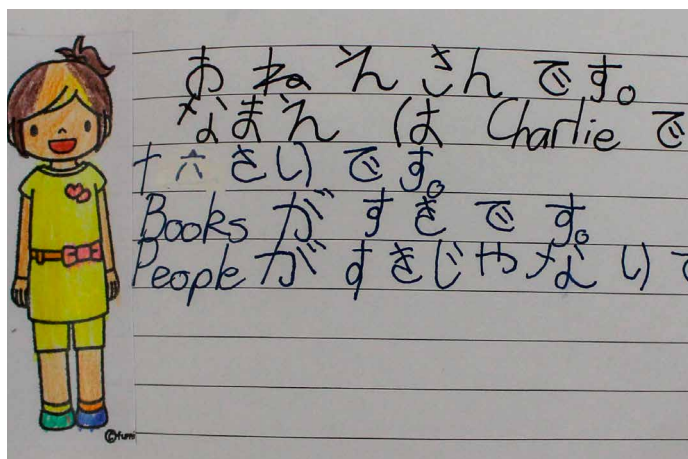 おねえさんです。
なまえ は Charlie で
十六さいです。
Books が すきです。
People が すきじゃない で
©fumi